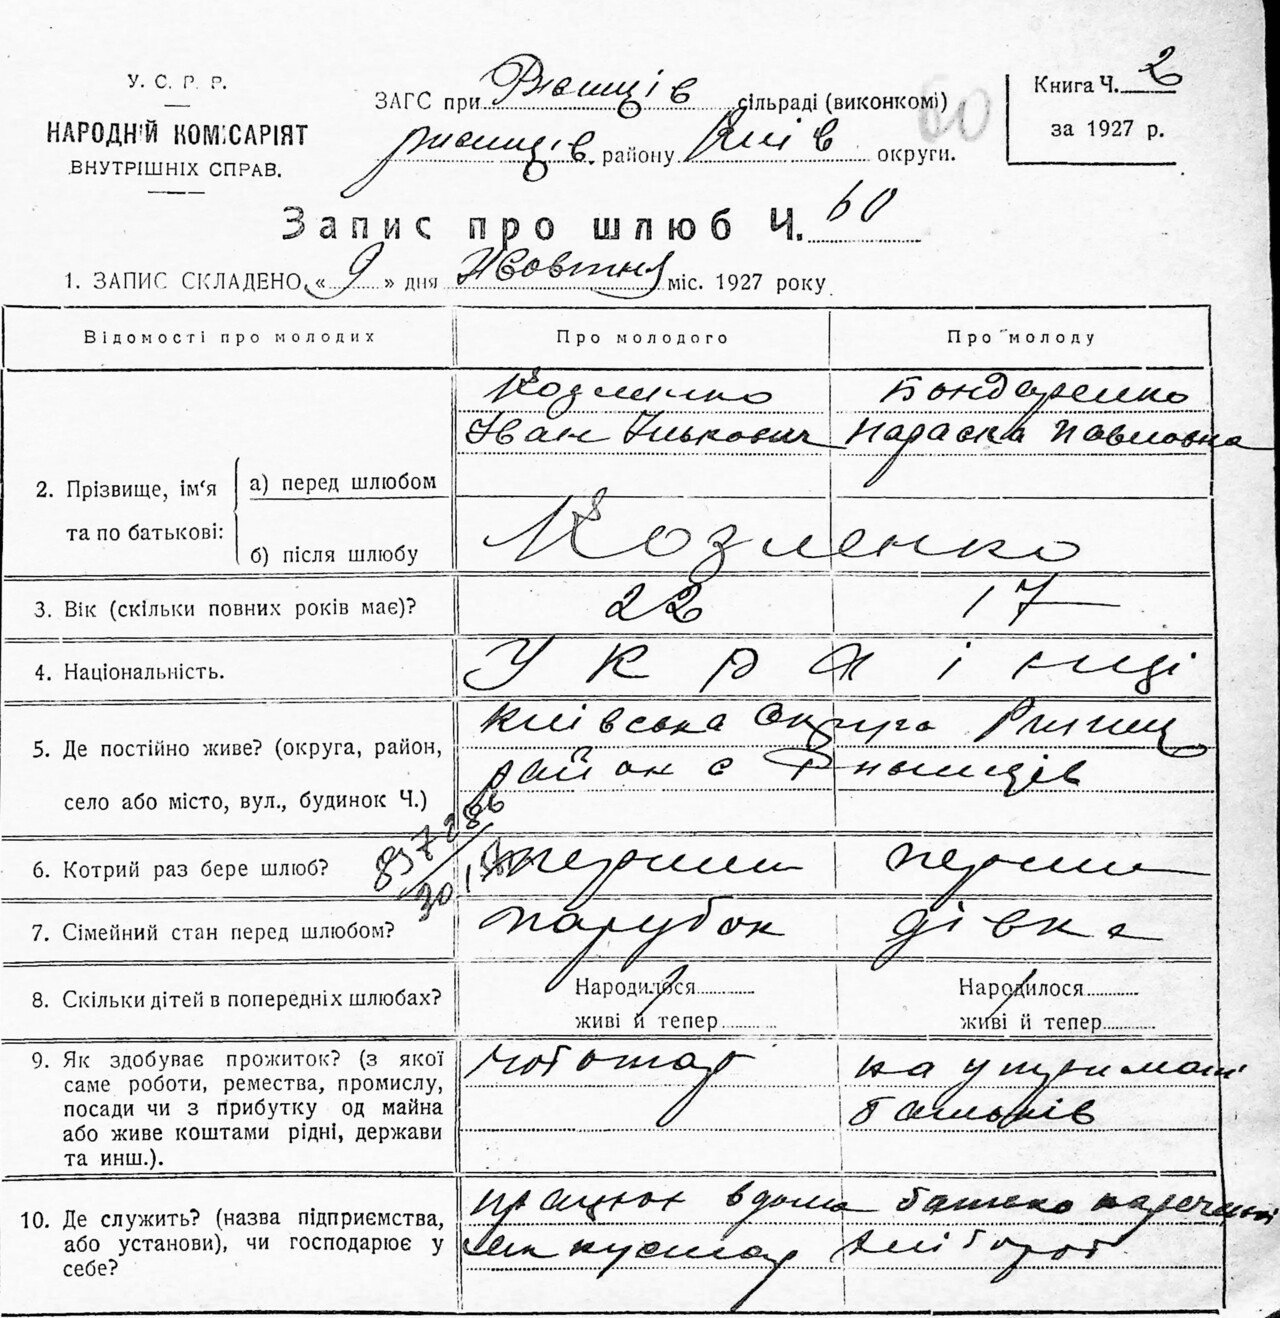 У. С. Р. Р.
НАРОДНІЙ КОМІСАРІЯТ
ВНУТРІШНІХ СПРАВ.
ЗАГС при Ржищів сільраді (виконкомі)
ржищів. району Київ округи.
60
Книга Ч. 2
за 1927 р.
Запис про шлюб Ч. 60
1. ЗАПИС СКЛАДЕНО „ 9 " дня Жовтня міс. 1927 року
Відомості про молодих
Про молодого
Про молоду
2. Прізвище, ім'я та по батькові:
а) перед шлюбом
Козленко
Іван Ількович
Бондаренко
Параска Павловна
б) після шлюбу
Козленко
3. Вік (скільки повних років має)?
22
17
4. Національність.
Українці
5. Де постійно живе? (округа, район,
село або місто, вул., будинок Ч.)
Київська округа Ржищ
район с Ржищів
6. Котрий раз бере шлюб?
перший
перший
7. Сімейний стан перед шлюбом?
парубок
дівка
8. Скільки дітей в попередніх шлюбах?
Народилося
живі й тепер
Народилося
живі й тепер
9. Як здобуває прожиток? (з якої
саме роботи, ремества, промислу,
посади чи з прибутку од майна
або живе коштами рідні, держави
та инш.).
чоботар
на утримані
батьків
10. Де служить? (назва підприємства,
або установи), чи господарює у
себе?
працює вдома
як кустар
батько нареченої
хлібороб